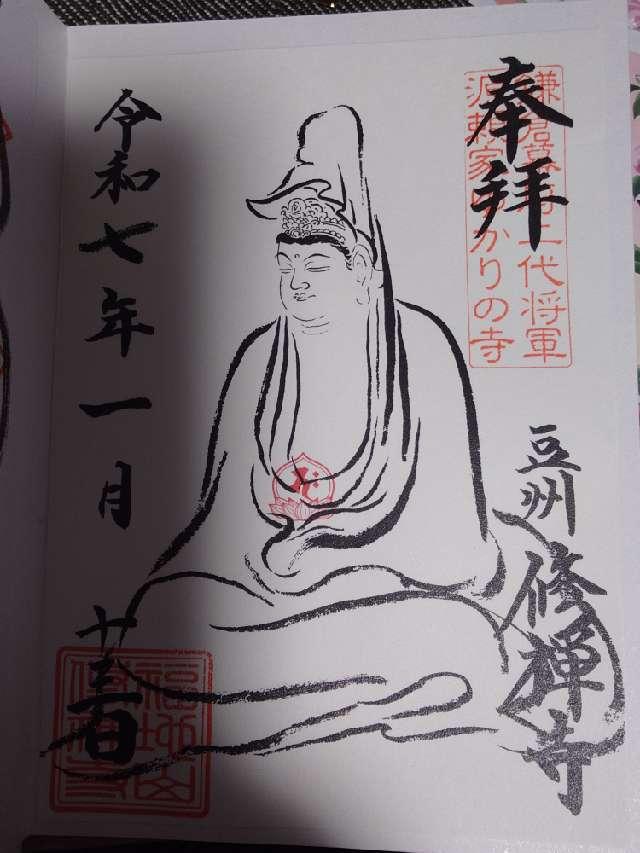 奉拝
鎌倉幕府二代将軍
源頼家ゆかりの寺
豆州 修禅寺
令和七年一月
福地山
修禅寺